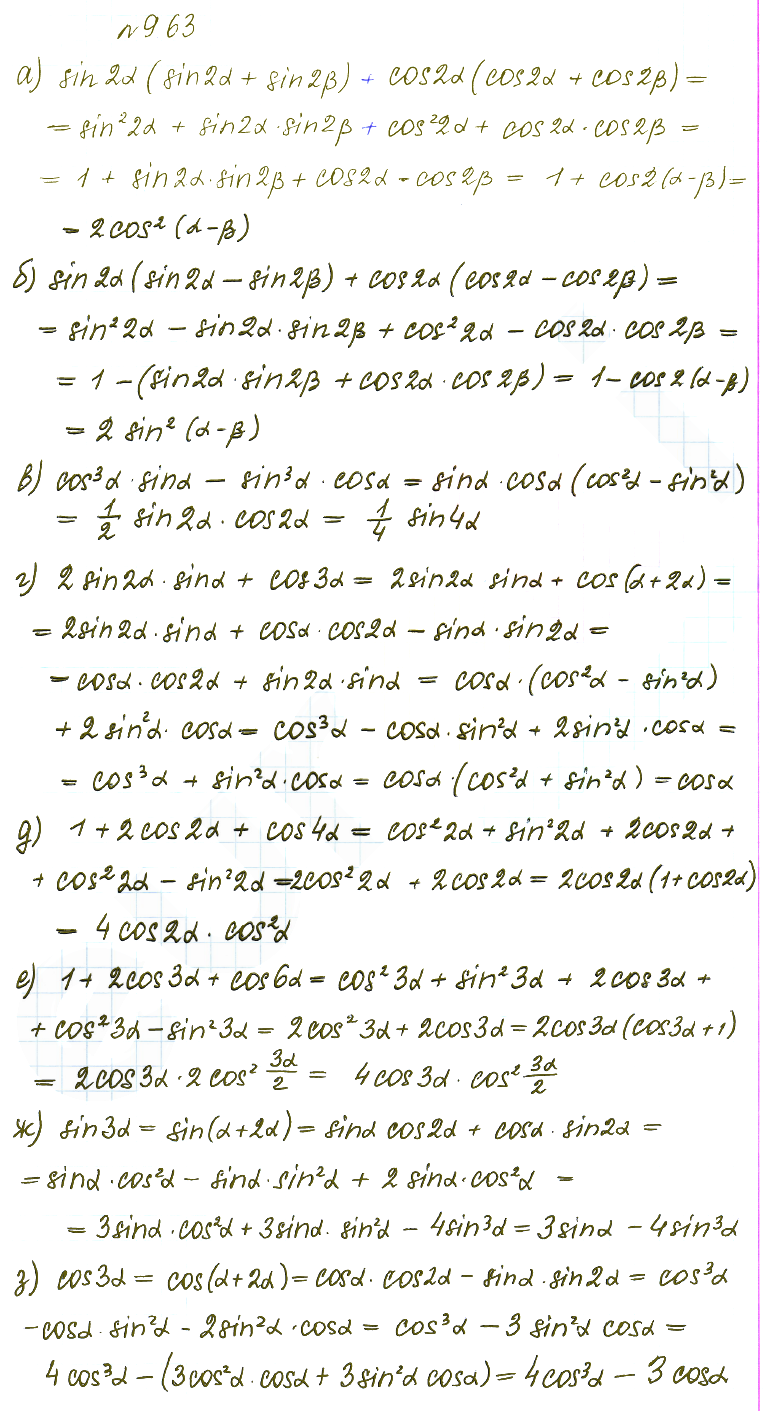 №963
а) sin 2α (sin2α + sin2β) + cos2α (cos2α + cos2β) =
= sin²2α + sin2α·sin2β + cos²2α + cos2α·cos2β =
= 1 + sin2α·sin2β + cos2α - cos2β = 1 + cos2(α-β) =
= 2cos² (α-β)
б) sin2α (sin2α - sin2β) + cos2α (cos2α - cos2β) =
= sin²2α - sin2α·sin2β + cos²2α - cos2α·cos2β =
= 1 - (sin2α·sin2β + cos2α·cos2β) = 1 - cos2(α-β)
= 2 sin² (α-β)
в) cos³α·sinα - sin³α·cosα = sinα·cosα (cos²α - sin²α)
= 1/2 sin2α·cos2α = 1/4 sin4α
г) 2 sin2α·sinα + cos3α = 2sin2α sinα + cos(α+2α) =
= 2sin2α·sinα + cosα·cos2α - sinα·sin2α =
- cosα·cos2α + sin2α·sinα = cosα·(cos²α - sin²α)
+ 2 sin²α·cosα = cos³α - cosα·sin²α + 2sin²α·cosα =
= cos³α + sin²α·cosα = cosα·(cos²α + sin²α) = cosα
д) 1 + 2cos2α + cos4α = cos²2α + sin²2α + 2cos2α +
+ cos²2α - sin²2α = 2cos²2α + 2cos2α = 2cos2α (1+cos2α)
- 4cos2α·cos²α
е) 1 + 2cos3α + cos6α = cos²3α + sin²3α + 2cos3α +
+ cos²3α - sin²3α = 2cos²3α + 2cos3α = 2cos3α (cos3α + 1)
= 2cos3α·2cos² 3α/2 = 4cos3α·cos² 3α/2
ж) sin3α = sin(α+2α) = sinα cos2α + cosα·sin2α =
= sinα·cos²α - sinα·sin²α + 2 sinα·cos²α =
= 3sinα·cos²α + 3sinα·sin²α - 4sin³α = 3sinα - 4sin³α
з) cos3α = cos(α+2α) = cosα·cos2α - sinα·sin2α = cos³α
- cosα·sin²α - 2sin²α·cosα = cos³α - 3 sin²α cosα =
4cos³α - (3cos²α·cosα + 3sin²α cosα) = 4cos³α - 3cosα